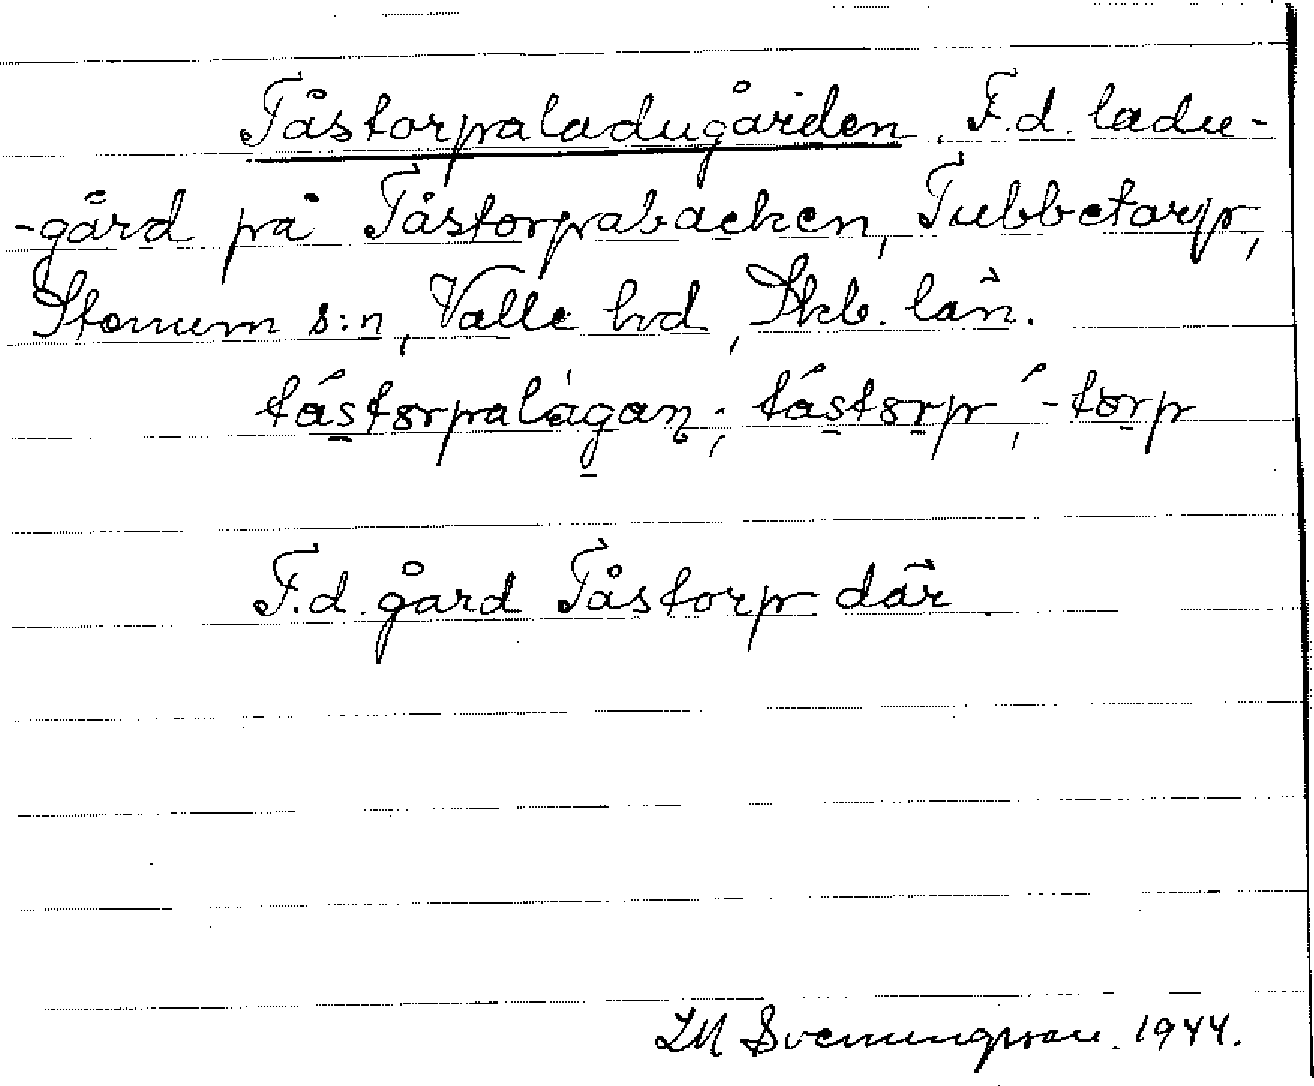 Tåstorpaladugården. F.d. ladu-
-gård på Tåstorpabacken, Tubbetorp,
Stenum s:n, Valle hd, Skb. län.
tástorpalàgan; tástorp, -torp
F.d. gård Tåstorp där
LM Svenungsson. 1944.